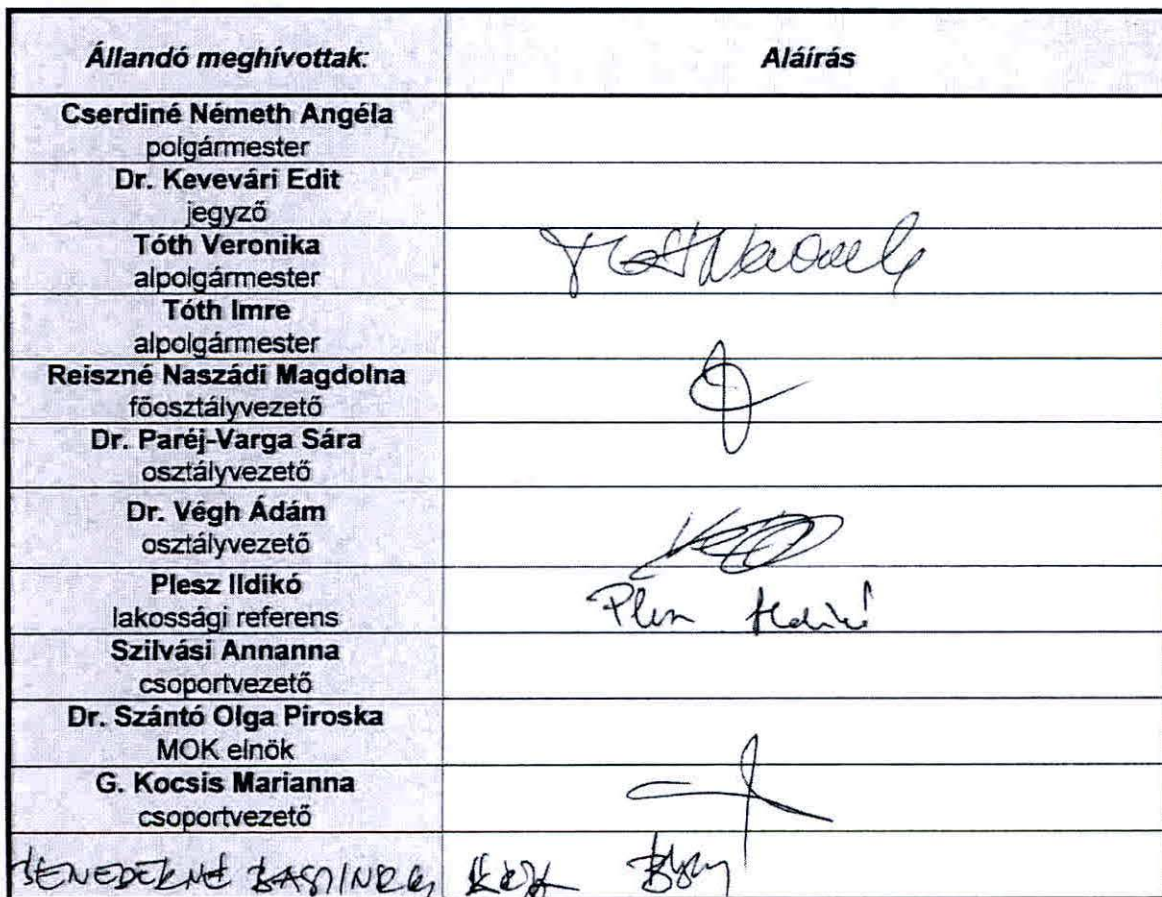 Állandó meghívottak: Aláírás
Cserdiné Németh Angéla
polgármester
Dr. Kevevári Edit
jegyző
Tóth Veronika
alpolgármester
Tóth Imre
alpolgármester
Reiszné Naszádi Magdolna
főosztályvezető
Dr. Paréj-Varga Sára
osztályvezető
Dr. Végh Ádám
osztályvezető
Plesz Ildikó
lakossági referens
Szilvási Annanna
csoportvezető
Dr. Szántó Olga Piroska
MOK elnök
G. Kocsis Marianna
csoportvezető
BENEDEKNÉ